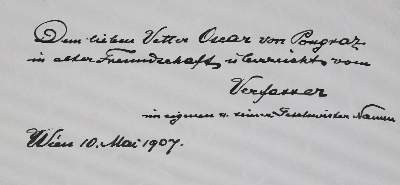 Dem lieben Vetter Oscar von Pongraz
in alter Freundschaft, überreicht vom
Verfasser
in eigenem u. seiner Geschwister Namen
Wien 10. Mai 1907.